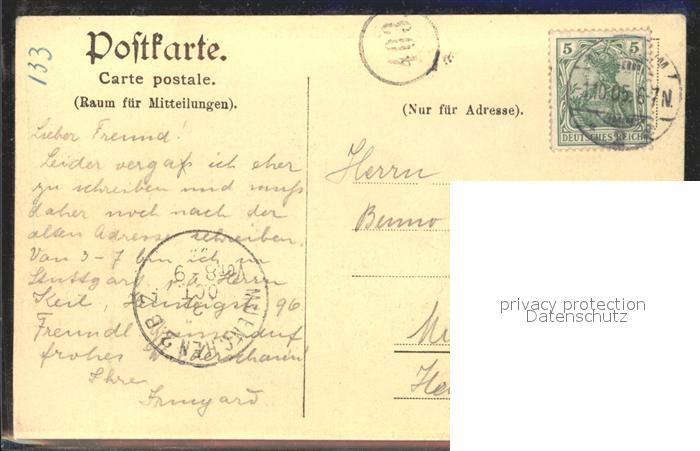 133
Postkarte.
Carte postale.
(Raum für Mitteilungen).
(Nur für Adresse).
403
5 5
DEUTSCHES REICH
10.05. 6-7N.
Lieber Freund!
Leider vergaß ich eher
zu schreiben und muß
daher noch nach der
alten Adresse schreiben.
Von 3-7 bin ich in
Stuttgart Herrn
Keil, 96
Freundl
frohes Wiederschauen!
Ihre
Irmgard
MUENCHEN 2 B.Z.
2 OCT
Vor 8-9
Herrn
Benno
privacy protection
Datenschutz